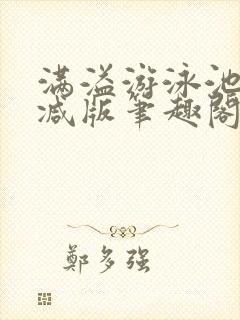 满溢游泳池
减版笔趣阁
鄭多强